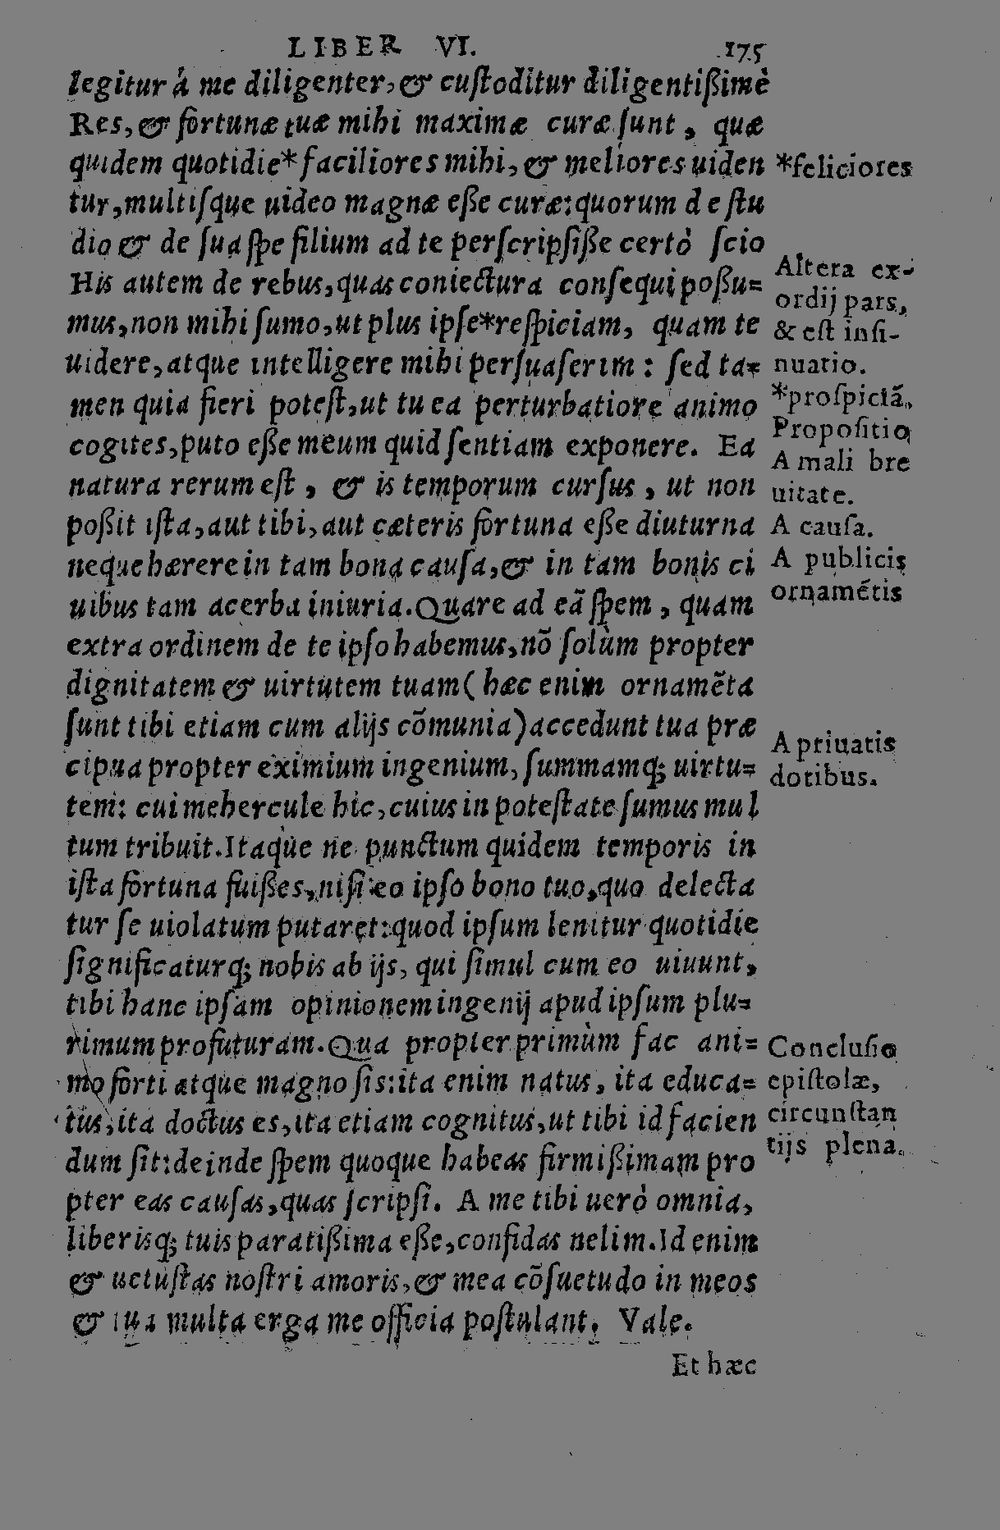 LIBER VI. 175
legitur à me diligenter, & custoditur diligentißimè
Res, & fortunæ tuæ mihi maximæ curæ sunt, quæ
quidem quotidie* faciliores mihi, & meliores uiden
tur, multisque uideo magnæ eße curæ: quorum de stu
dio & de sua spe filium ad te perscripsiße certò scio
His autem de rebus, quas coniectura consequi poßu=
mus, non mihi sumo, ut plus ipse*respiciam, quam te
uidere, atque intelligere mihi persuaserim: sed ta=
men quia fieri potest, ut tu ea perturbatiore animo
cogites, puto eße meum quid sentiam exponere. Ea
natura rerum est, & is temporum cursus, ut non
poßit ista, aut tibi, aut cæteris fortuna eße diuturna
neque hærere in tam bona causa, & in tam bonis ci
uibus tam acerba iniuria. Quare ad eã spem, quam
extra ordinem de te ipso habemus, nõ solùm propter
dignitatem & uirtutem tuam (hæc enim ornamẽta
sunt tibi etiam cum alijs cõmunia) accedunt tua præ
cipua propter eximium ingenium, summamq; uirtu=
tem: cui mehercule hic, cuius in potestate sumus mul
tum tribuit. Itaque ne punctum quidem temporis in
ista fortuna fuißes, nisi eo ipso bono tuo, quo delecta
tur se uiolatum putaret: quod ipsum lenitur quotidie
significaturq; nobis ab ijs, qui simul cum eo uiuunt,
tibi hanc ipsam opinionem ingenij apud ipsum plu=
rimum profuturam. Qua propter primùm fac ani=
mo forti atque magno sis: ita enim natus, ita educa=
tus, ita doctus es, ita etiam cognitus, ut tibi id facien
dum sit: deinde spem quoque habeas firmißimam pro
pter eas causas, quas scripsi. A me tibi uerò omnia,
liberisq; tuis paratißima eße, confidas uelim. Id enim
& uetustas nostri amoris, & mea cõsuetudo in meos
& tua multa erga me officia postulant. Vale.
Et hæc
*feliciores
Altera ex-
ordij pars,
& est insi-
nuatio.
*prospiciã.
Propositio
A mali bre
uitate.
A causa.
A publicis
ornamẽtis
A priuatis
dotibus.
Conclusio
epistolæ,
circunstan
tijs plena.